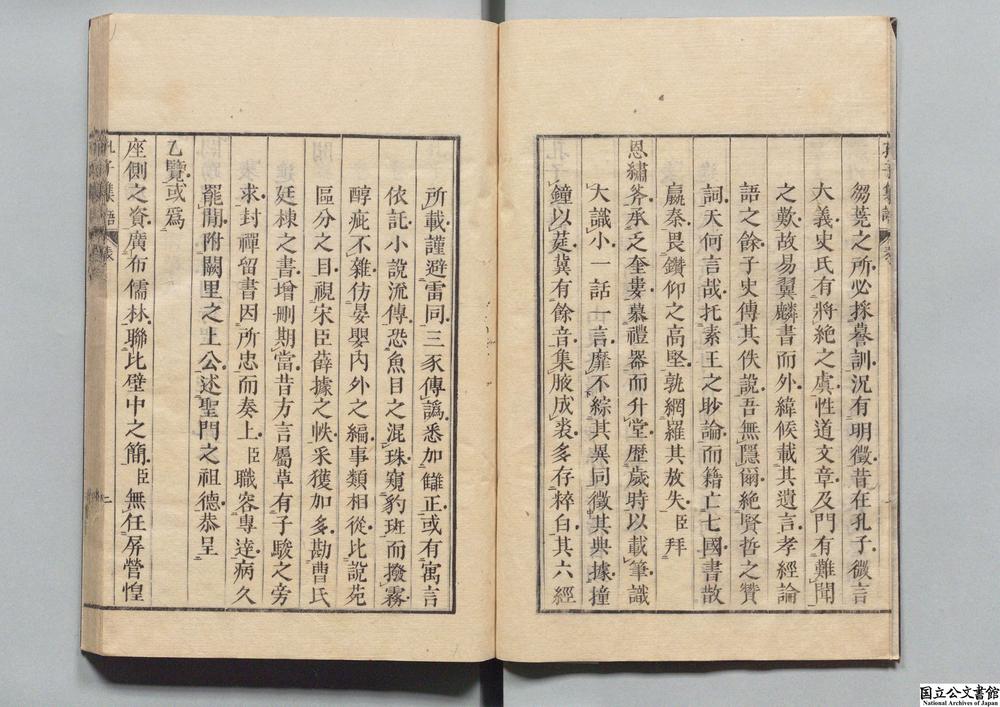 芻蕘之所必採謩訓況有明徵昔在孔子微言
大義史氏有將絶之虞性道文章及門有難聞
之歎故易翼麟書而外緯候載其遺言孝經論
語之餘子史傳其佚說吾無隱爾絶賢哲之贊
詞天何言哉托素王之眇論而籍亡七國書散
嬴秦畏鑽仰之高堅孰網羅其放失臣拜
恩繡斧承乏奎婁慕禮器而升堂歷歲時以載筆識
大識小一話一言靡不綜其異同徵其典據撞
鐘以莛冀有餘音集腋成裘多存粹白其六經
所載謹避雷同三豕傳譌悉加讎正或有寓言
依託小說流傳恐魚目之混珠窺豹班而撥霧
醇疵不雜仿晏嬰內外之編事類相從比說苑
區分之目視宋臣薛據之帙采獲加多勘曹氏
廷棟之書增刪期當昔方言屬草有子駿之旁
求封禪留書因所忠而奏上臣職容專達病久
罷閒附闕里之上公述聖門之祖德恭呈
乙覽或爲
座側之資廣布儒林聯比壁中之簡臣無任屏營惶
孔子集語
表
二
国立公文書館
National Archives of Japan